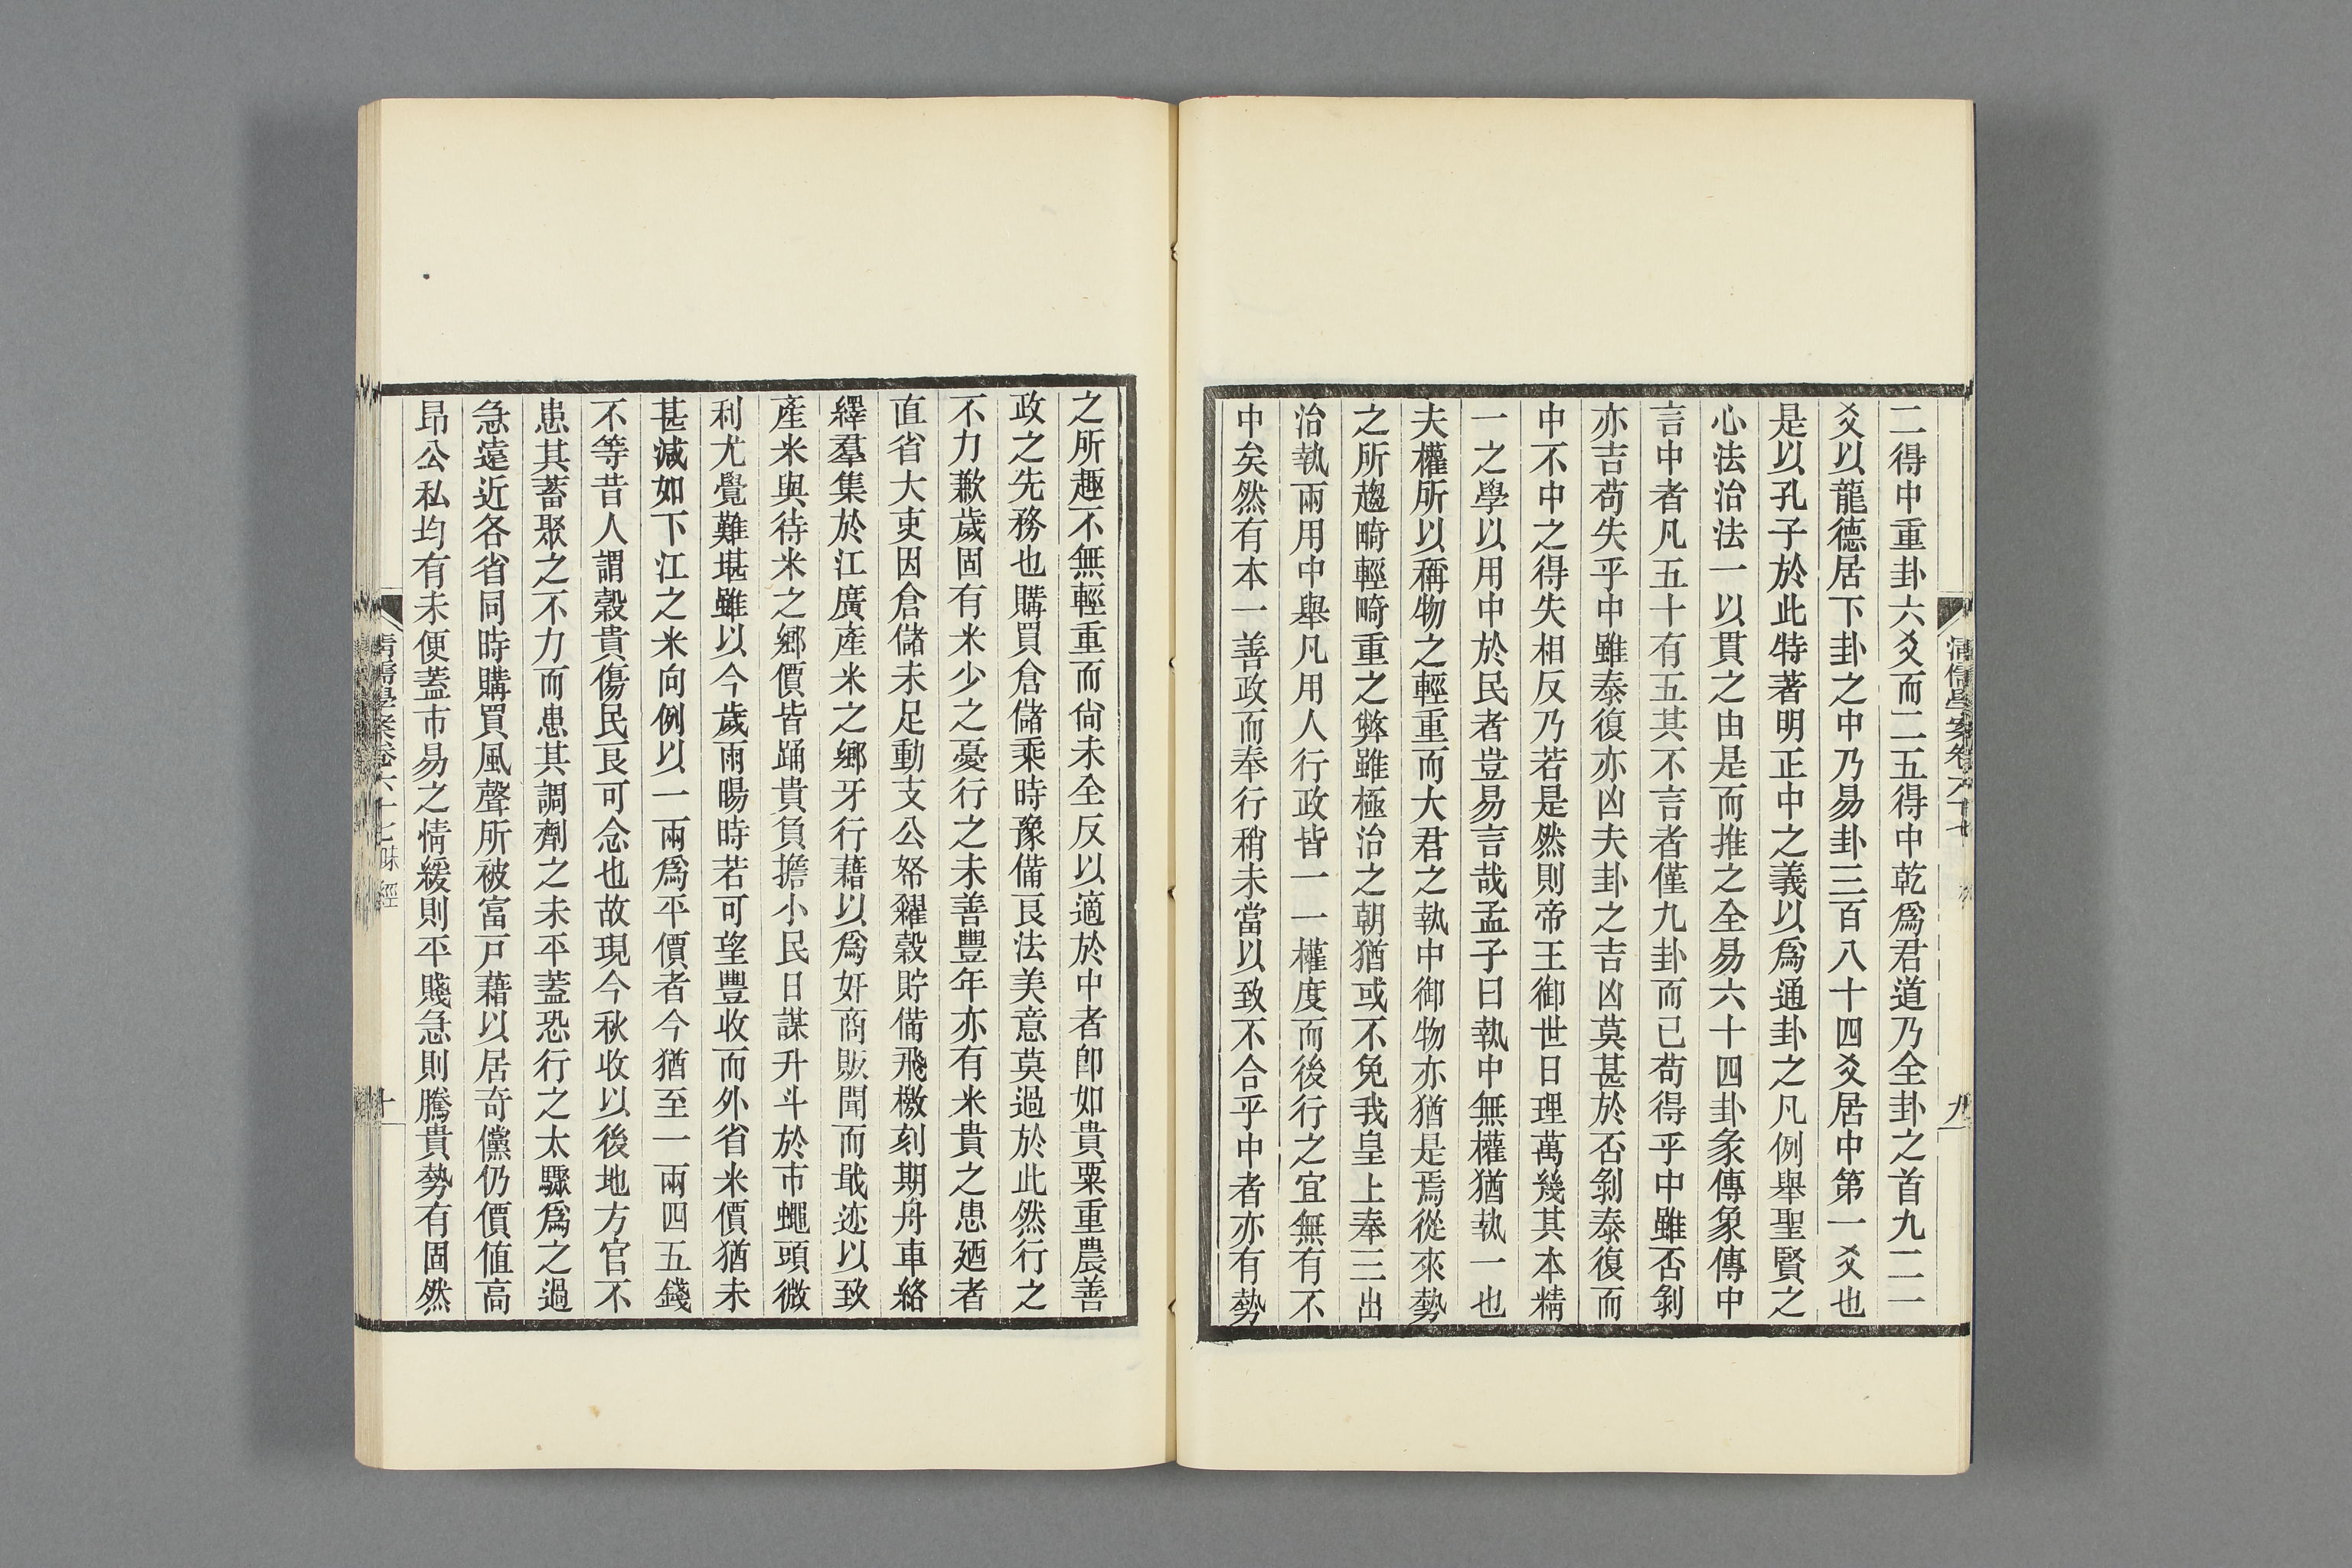 清儒學案卷六十七
九
二得中重卦六爻而二五得中乾爲君道乃全卦之首九二一
爻以龍德居下卦之中乃易卦三百八十四爻居中第一爻也
是以孔子於此特著明正中之義以爲通卦之凡例舉聖賢之
心法治法一以貫之由是而推之全易六十四卦彖傳象傳中
言中者凡五十有五其不言者僅九卦而已苟得乎中雖否剝
亦吉苟失乎中雖泰復亦凶夫卦之吉凶莫甚於否剝泰復而
中不中之得失相反乃若是然則帝王御世日理萬幾其本精
一之學以用中於民者豈易言哉孟子曰執中無權猶執一也
夫權所以稱物之輕重而大君之執中御物亦猶是焉從來勢
之所趨畸輕畸重之弊雖極治之朝猶或不免我皇上奉三出
治執兩用中舉凡用人行政皆一一權度而後行之宜無有不
中矣然有本一善政而奉行稍未當以致不合乎中者亦有勢
之所趣不無輕重而尙未全反以適於中者卽如貴粟重農善
政之先務也購買倉儲乘時豫備良法美意莫過於此然行之
不力歉歲固有米少之憂行之未善豐年亦有米貴之患廼者
直省大吏因倉儲未足動支公帑糴穀貯備飛檄刻期舟車絡
繹羣集於江廣產米之鄉牙行藉以爲奸商販聞而戢迹以致
產米與待米之鄉價皆踊貴負擔小民日謀升斗於市蠅頭微
利尤覺難堪雖以今歲雨暘時若可望豐收而外省米價猶未
甚減如下江之米向例以一兩爲平價者今猶至一兩四五錢
不等昔人謂穀貴傷民良可念也故現今秋收以後地方官不
患其蓄聚之不力而患其調劑之未平蓋恐行之太驟爲之過
急遠近各省同時購買風聲所被富戶藉以居奇儻仍價値高
昂公私均有未便蓋市易之情緩則平賤急則騰貴勢有固然
清儒學案卷六十七 味經
十